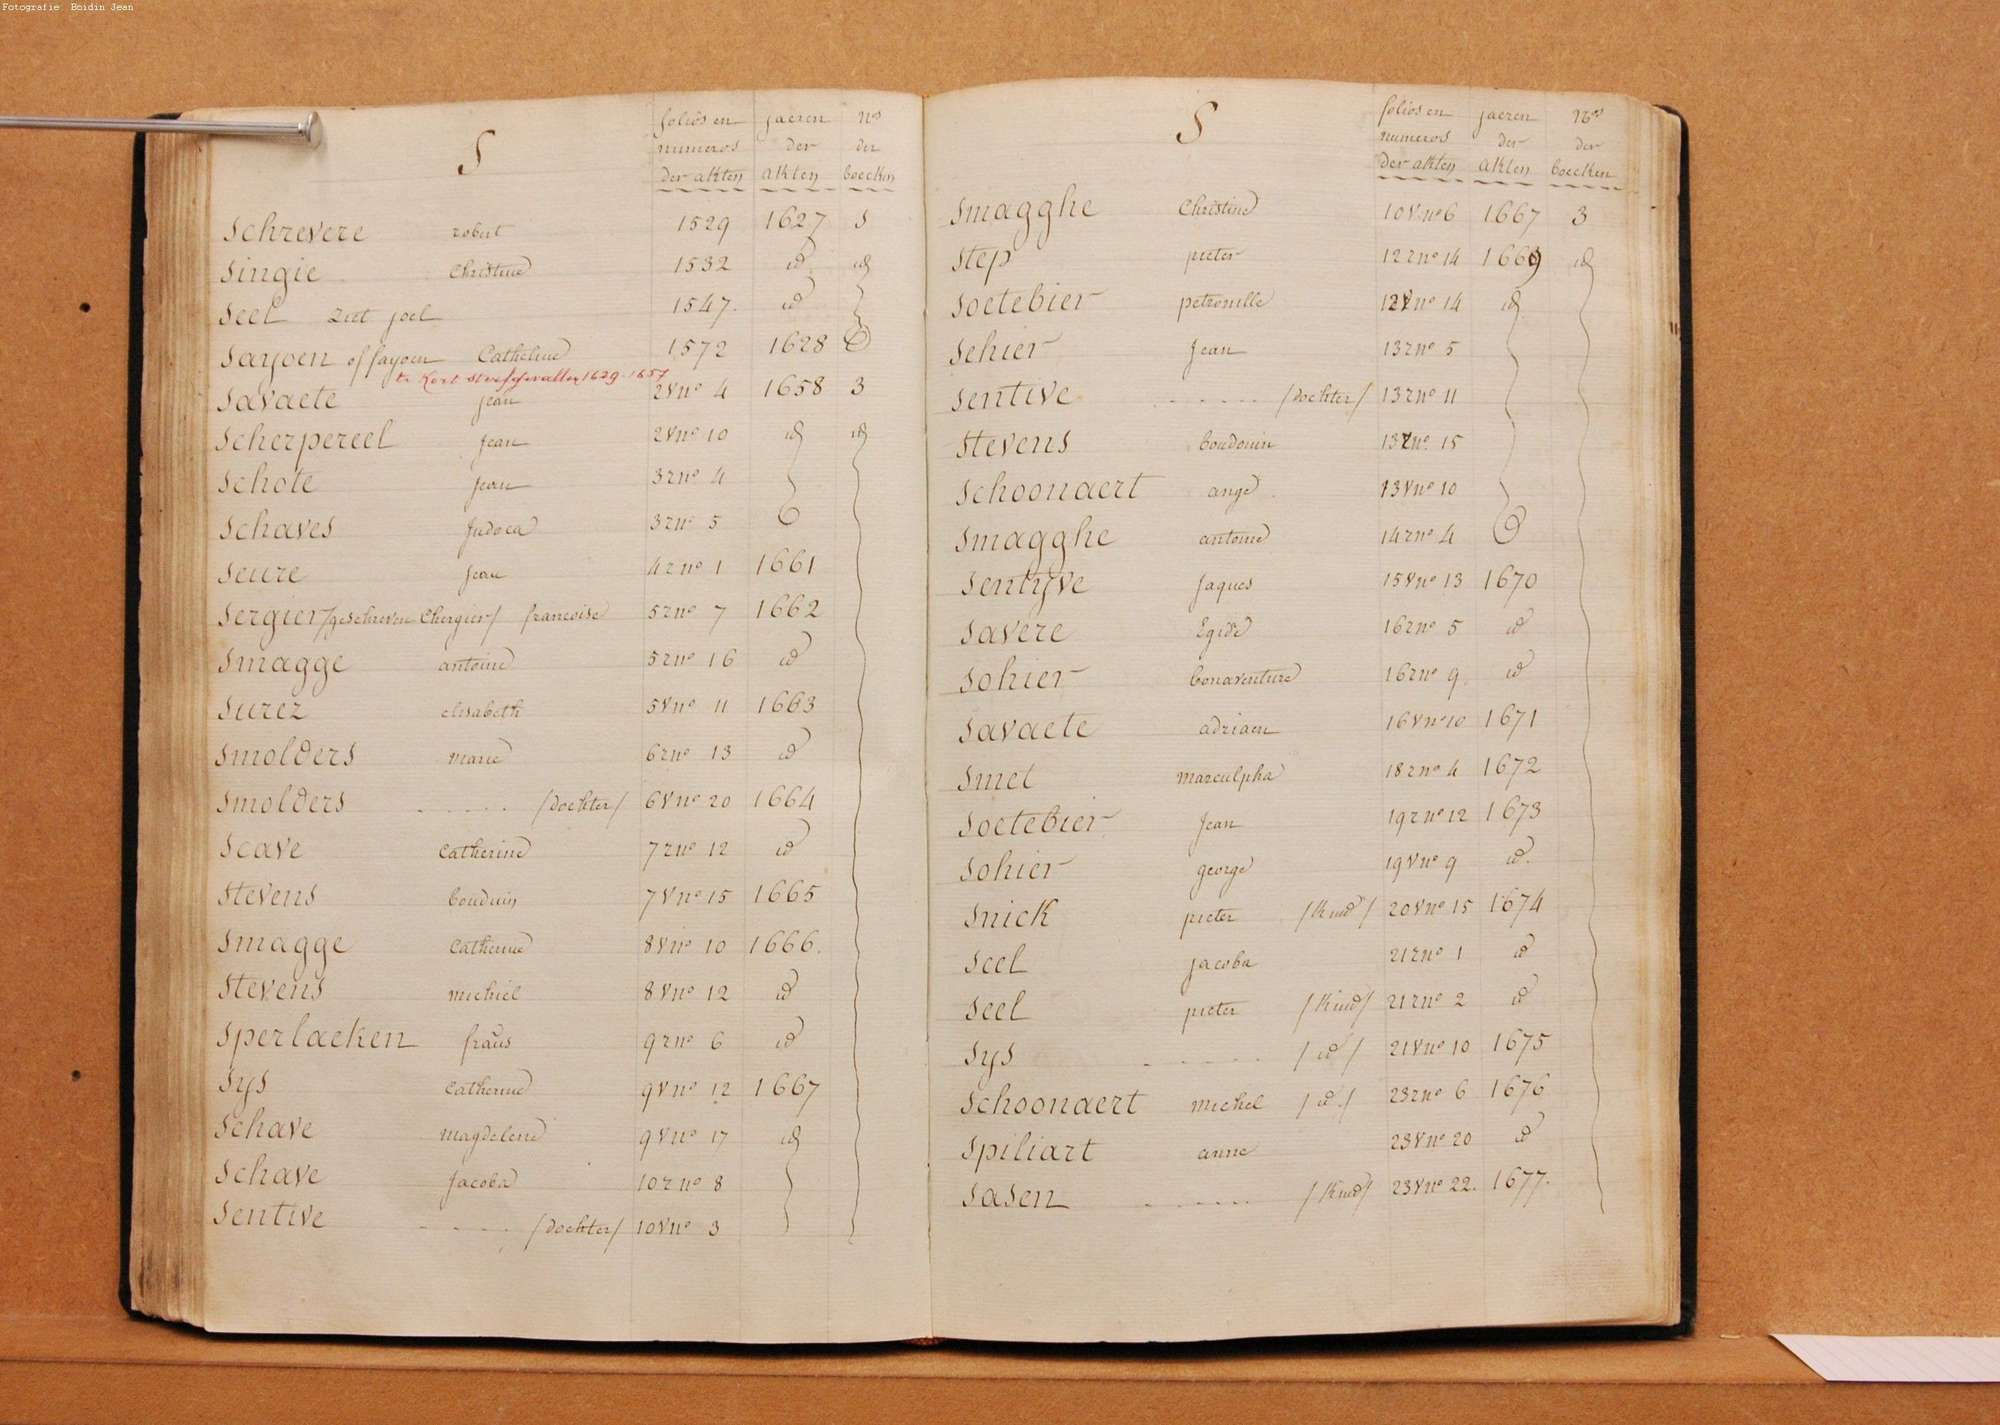 Fotografie Boidin Jean
S
folios en jaeren nos
numeros der der
der akten akten boecken
Schrevere robert 1529 1627 S
Singie Christine 1532 id id
Seel ziet joel 1547. id
Sayoen of fayoen Catheline 1572 1628
1629-1657
Savaete jean 2V no 4 1658 3
Scherpereel jean 2V no 10 id id
Schote jean 3r no 4
Schaves Judoca 3r no 5
Seure jean 4r no 1 1661
Sergier /geschreven Chergier/ francoise 5r no 7 1662
Smagge antoine 5r no 16 id
Surez elisabeth 5V no 11 1663
Smolders marie 6r no 13 id
Smolders - - - - - /dochter/ 6V no 20 1664
Scave Catherine 7r no 12 id
Stevens bouduin 7V no 15 1665
Smagge Catherine 8V no 10 1666.
Stevens michiel 8V no 12 id
Sperlaeken fraüs 9r no 6 id
Sys Catherine 9V no 12 1667
Schave magdelene 9V no 17 id
Schave Jacoba 10r no 8
Sentive - - - - - /dochter/ 10V no 3
S
folios en jaeren nos
numeros der der
der akten akten boecken
Smagghe Christine 10V no 6 1667 3
Step pieter 12r no 14 1669 id
Soetebier petronille 12V no 14 id
Sehier Jean 13r no 5
Sentive - - - - - - /dochter/ 13r no 11
Stevens boudouin 13r no 15
Schoonaert ange 13V no 10
Smagghe antoine 14r no 4
Sentyve Jaques 15V no 13 1670
Savere Egide 16r no 5 id
Sohier bonaventure 16r no 9 id
Savaete adriaen 16V no 10 1671
Smet marculpha 18r no 4 1672
Soetebier Jean 19r no 12 1673
Sohier george 19V no 9 id.
Snick pieter /Kind/ 20V no 15 1674
Seel jacoba 21r no 1 id
Seel pieter /Kind/ 21r no 2 id
Sys - - - - - /id/ 21V no 10 1675
Schoonaert michel /id./ 23r no 6 1676
Spiliart anne 23V no 20 id
Sasen - - - - - /Kind/ 23V no 22. 1677.